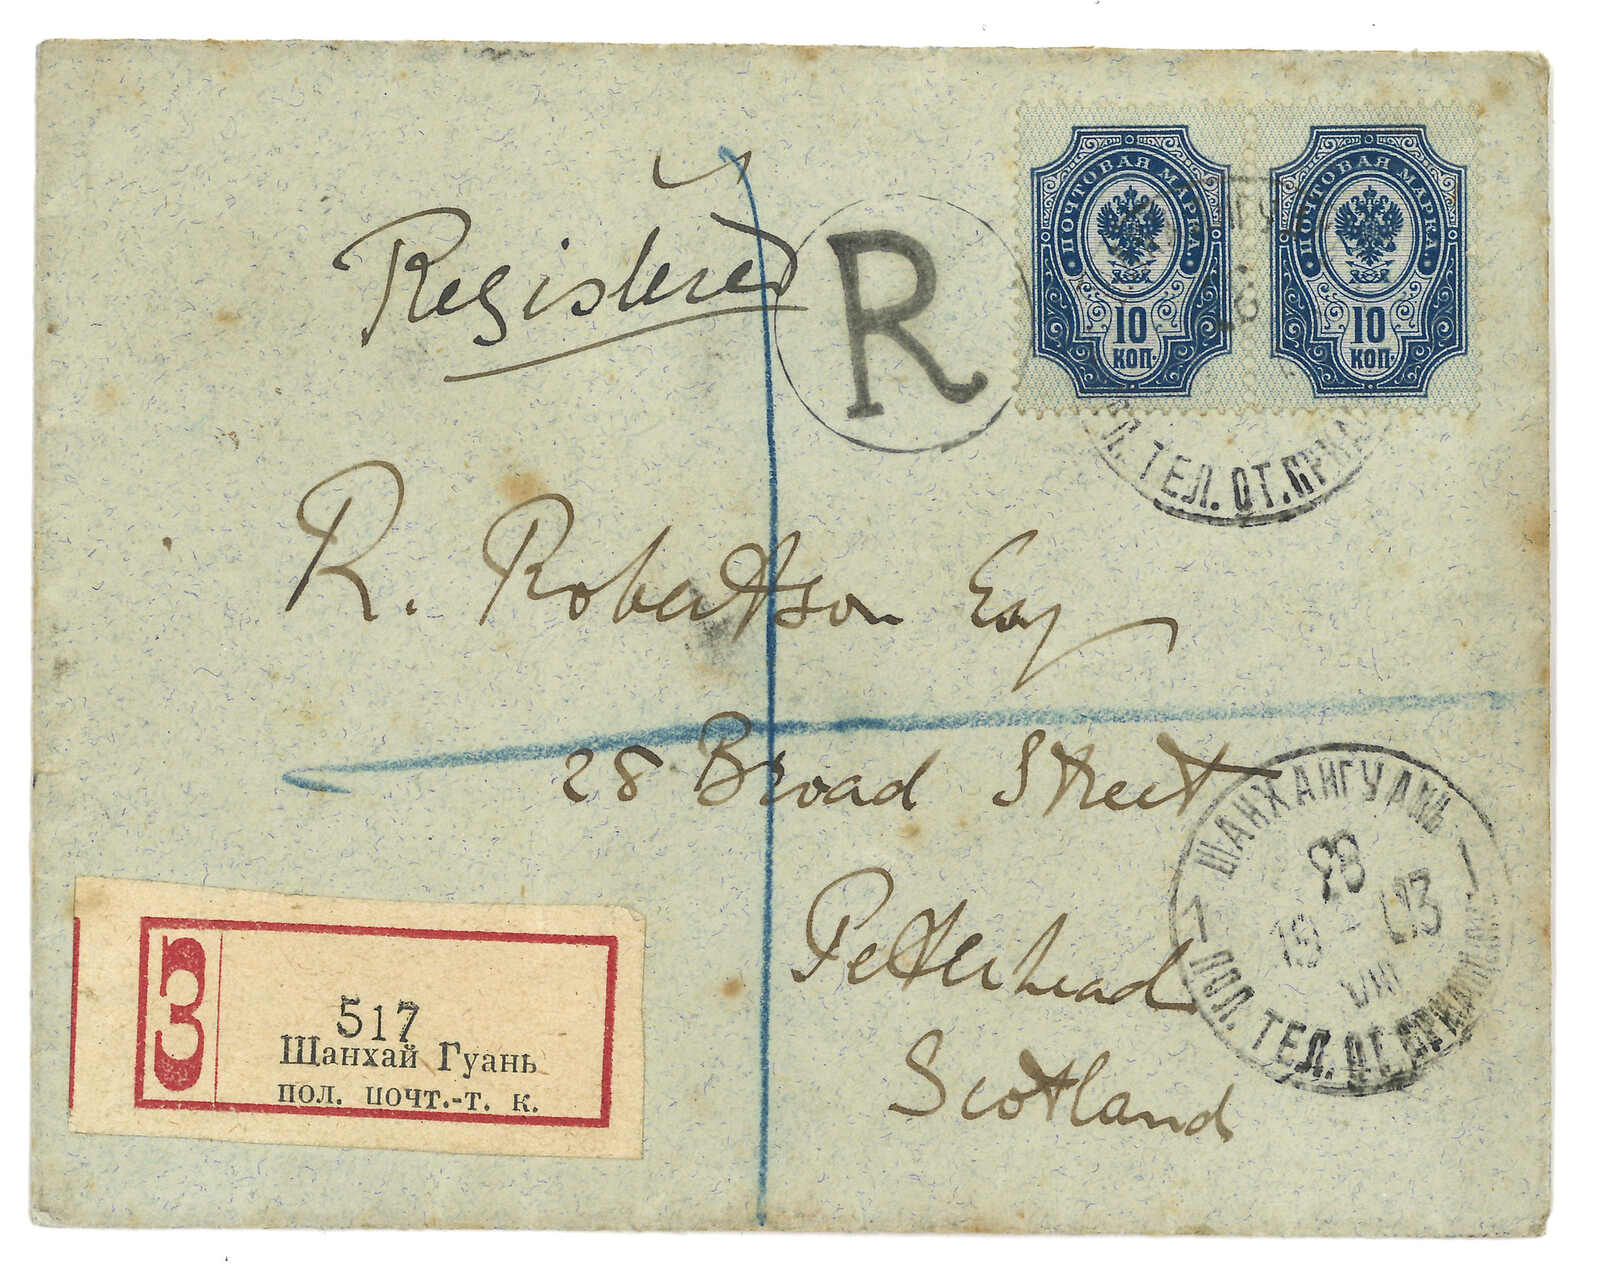 Registered
R
ПОЧТОВАЯ МАРКА
10
КОП.
ПОЧТОВАЯ МАРКА
10
КОП.
ТЕЛ. ОТ.
R. Robertson Esq
28 Broad Street
Peterhead
Scotland
ШАНХАЙГУАНЬ
28
19 13
VIII
ПОЛ. ТЕЛ. ОТ.
З
517
Шанхай Гуань
пол. почт.-т. к.